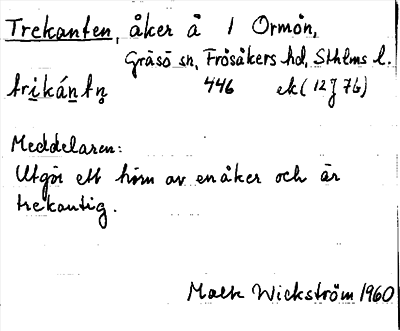 Trekanten, åker å 1 Ormön,
Gräsö sn, Frösåkers hd, Sthlms l.
tri̲kántn̥ 446 ek (12 J 7b)
Meddelaren:
Utgör ett hörn av en åker och är
trekantig.
Wickström 1960